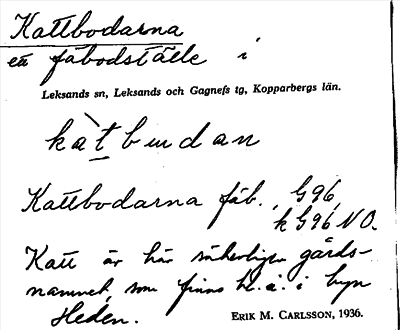 Kattbodarna
ett fäbodställe i
Leksands sn, Leksands och Gagnefs tg, Kopparbergs län.
kàtbudan
Kattbodarna fäb., G96,
k G96 NO.
Katt är här säkerligen gårds-
namnet, som finns bl. a. i byn
Heden.
ERIK M. CARLSSON, 1936.